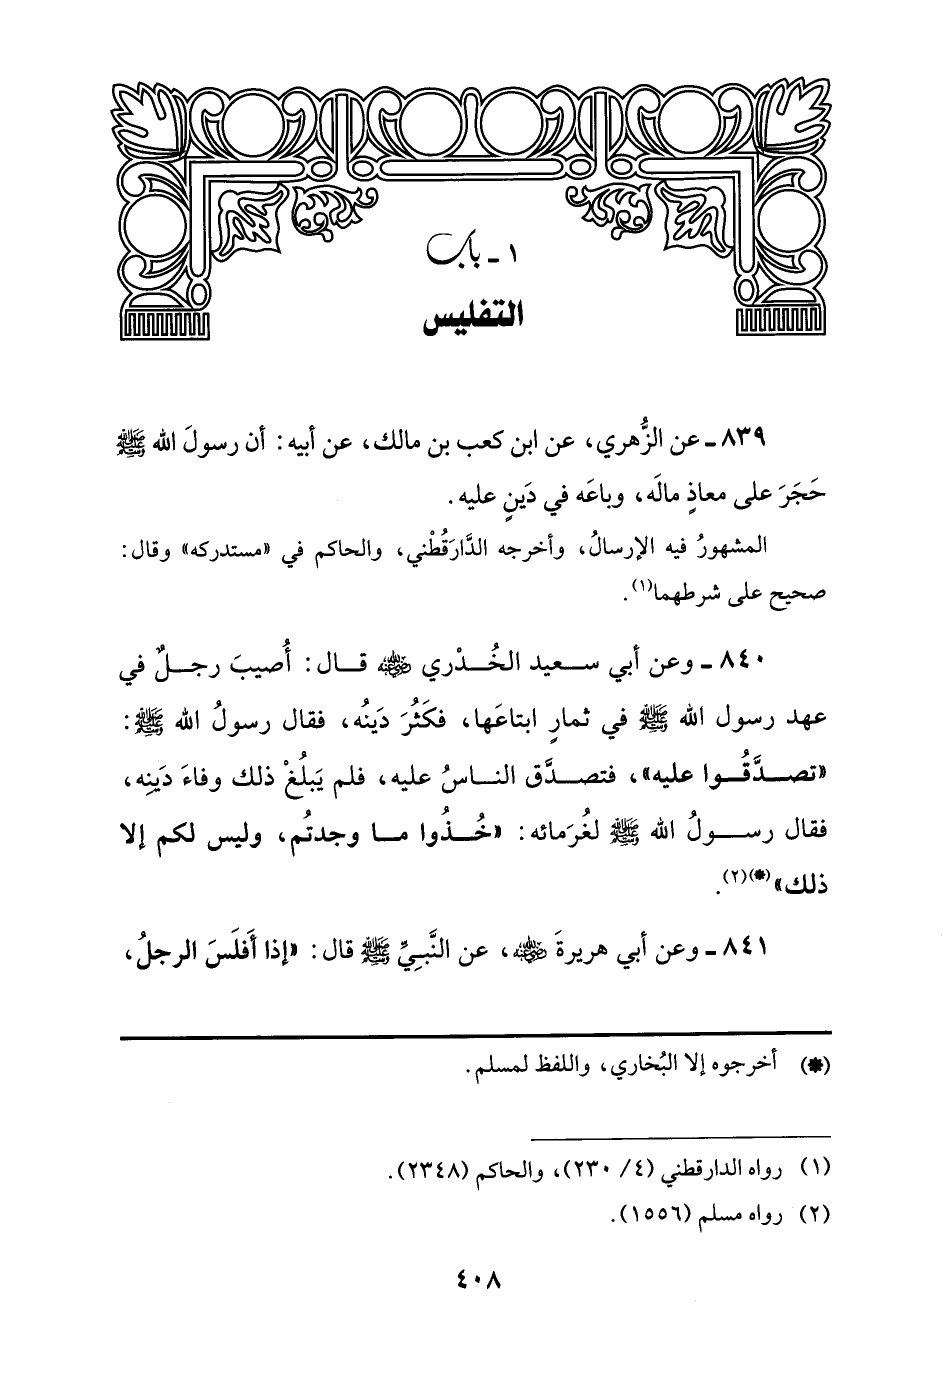 ١ ـ باب
التفليس
٨٣٩ ـ عن الزُّهري، عن ابن كعب بن مالك، عن أبيه: أن رسولَ الله ﷺ
حَجَرَ على معاذٍ مالَه، وباعَه في دَينٍ عليه.
المشهورُ فيه الإرسالُ، وأخرجه الدَّارَقُطْني، والحاكم في «مستدركه» وقال:
صحيح على شرطهما(١).
٨٤٠ ـ وعن أبي سعيد الخُدْري رضي الله عنه قال: أُصيبَ رجلٌ في
عهد رسول الله ﷺ في ثمارٍ ابتاعَها، فكَثُرَ دَينُه، فقال رسولُ الله ﷺ:
«تصدَّقُوا عليه»، فتصدَّق الناسُ عليه، فلم يَبلُغْ ذلك وفاءَ دَينِه،
فقال رسولُ الله ﷺ لغُرَمائه: «خُذُوا ما وجدتُم، وليس لكم إلا
ذلك»(*)(٢).
٨٤١ ـ وعن أبي هريرةَ رضي الله عنه، عن النَّبيِّ ﷺ قال: «إذا أَفلَسَ الرجلُ،
(*) أخرجوه إلا البُخاري، واللفظ لمسلم.
(١) رواه الدارقطني (٤/ ٢٣٠)، والحاكم (٢٣٤٨).
(٢) رواه مسلم (١٥٥٦).
٤٠٨